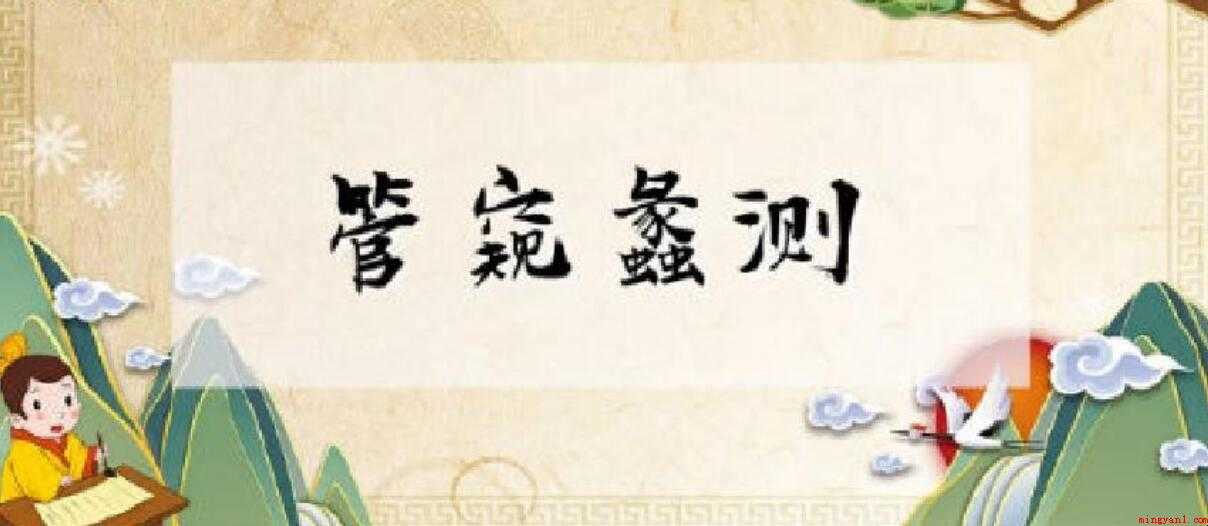 管窥蠡测
mingyanl.com